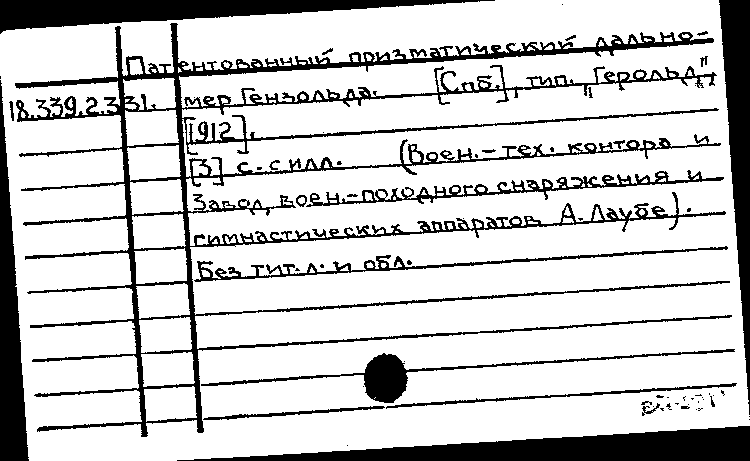 Патентованный призматический дально-
18.339.2.331. мер Гензольда. [Спб.], тип. „Герольд",
[1912].
[3] с. с илл. (Воен.-тех. контора и
завод воен.-походного снаряжения и
гимнастических аппаратов А. Лаубе).
Без тит. л. и обл.